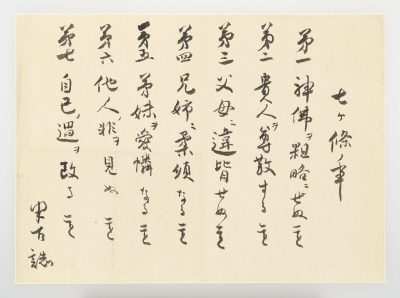 七ヶ條ノ事
第一神佛ヲ粗略ニせぬ
第二貴人ヲ尊敬する
第三父母ニ違背せぬ
第四兄姉ニ柔順なる
第五弟妹ヲ愛憐なる
第六他人ノ非ヲ見ぬ
第七自己ノ過ヲ改る